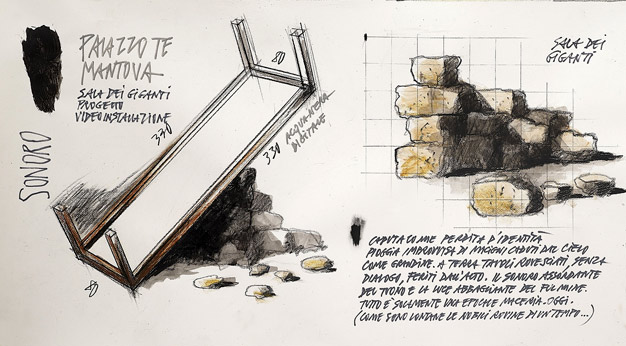 PALAZZO TE
MANTOVA
SALA DEI GIGANTI
PROGETTO
VIDEOINSTALLAZIONE
SONORO
80
330
330
ACQUATINTA
DIGITALE
80
SALA DEI
GIGANTI
CADUTA COME PERDITA D'IDENTITÀ
PIOGGIA IMPROVVISA DI MACIGNI CADUTI DAL CIELO
COME GRANDINE. A TERRA TAVOLI ROVESCIATI, SENZA
DIALOGO, FERITI DALL'ALTO. IL SONORO ASSORDANTE
DEL TUONO E LA LUCE ABBAGLIANTE DEL FULMINE.
TUTO È SOLAMENTE UNA EPOCHE MACERIA. OGGI.
(COME SONO LONTANE LE NOBILI ROVINE DI UN TEMPO...)